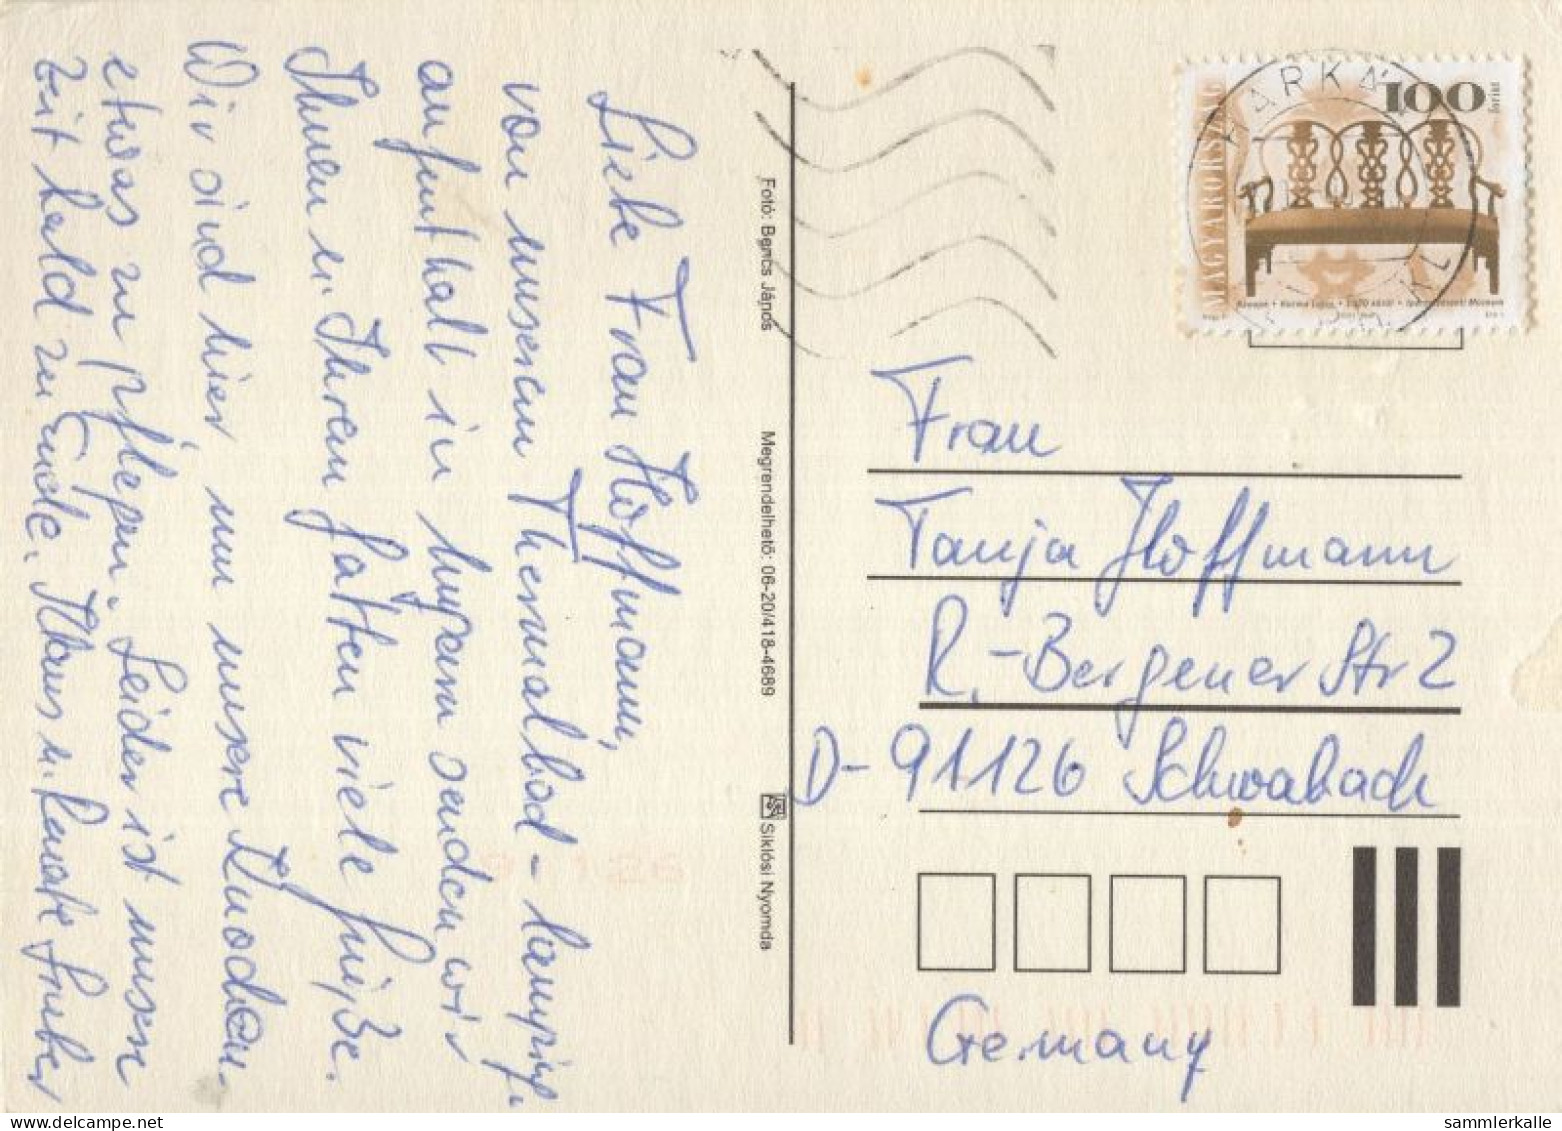 Liebe Frau Hoffmann,
von unserem Thermalbad-Camping-
aufenthalt in Ungarn senden wir
Ihnen u. Ihrem Gatten viele Grüße.
Wir sind hier, um unsere Knochen
etwas zu pflegen. Leider ist unsere
Zeit bald zu Ende. Klaus u. Renate Gruber
Fotó: Bencs János
Megrendelhető: 06-20/418-4689
Siklósi Nyomda
HARKÁ
100
forint
MAGYARORSZÁG
Frau
Tanja Hoffmann
R.-Bergener Str 2
D-91126 Schwabach
Germany
sammlerkalle